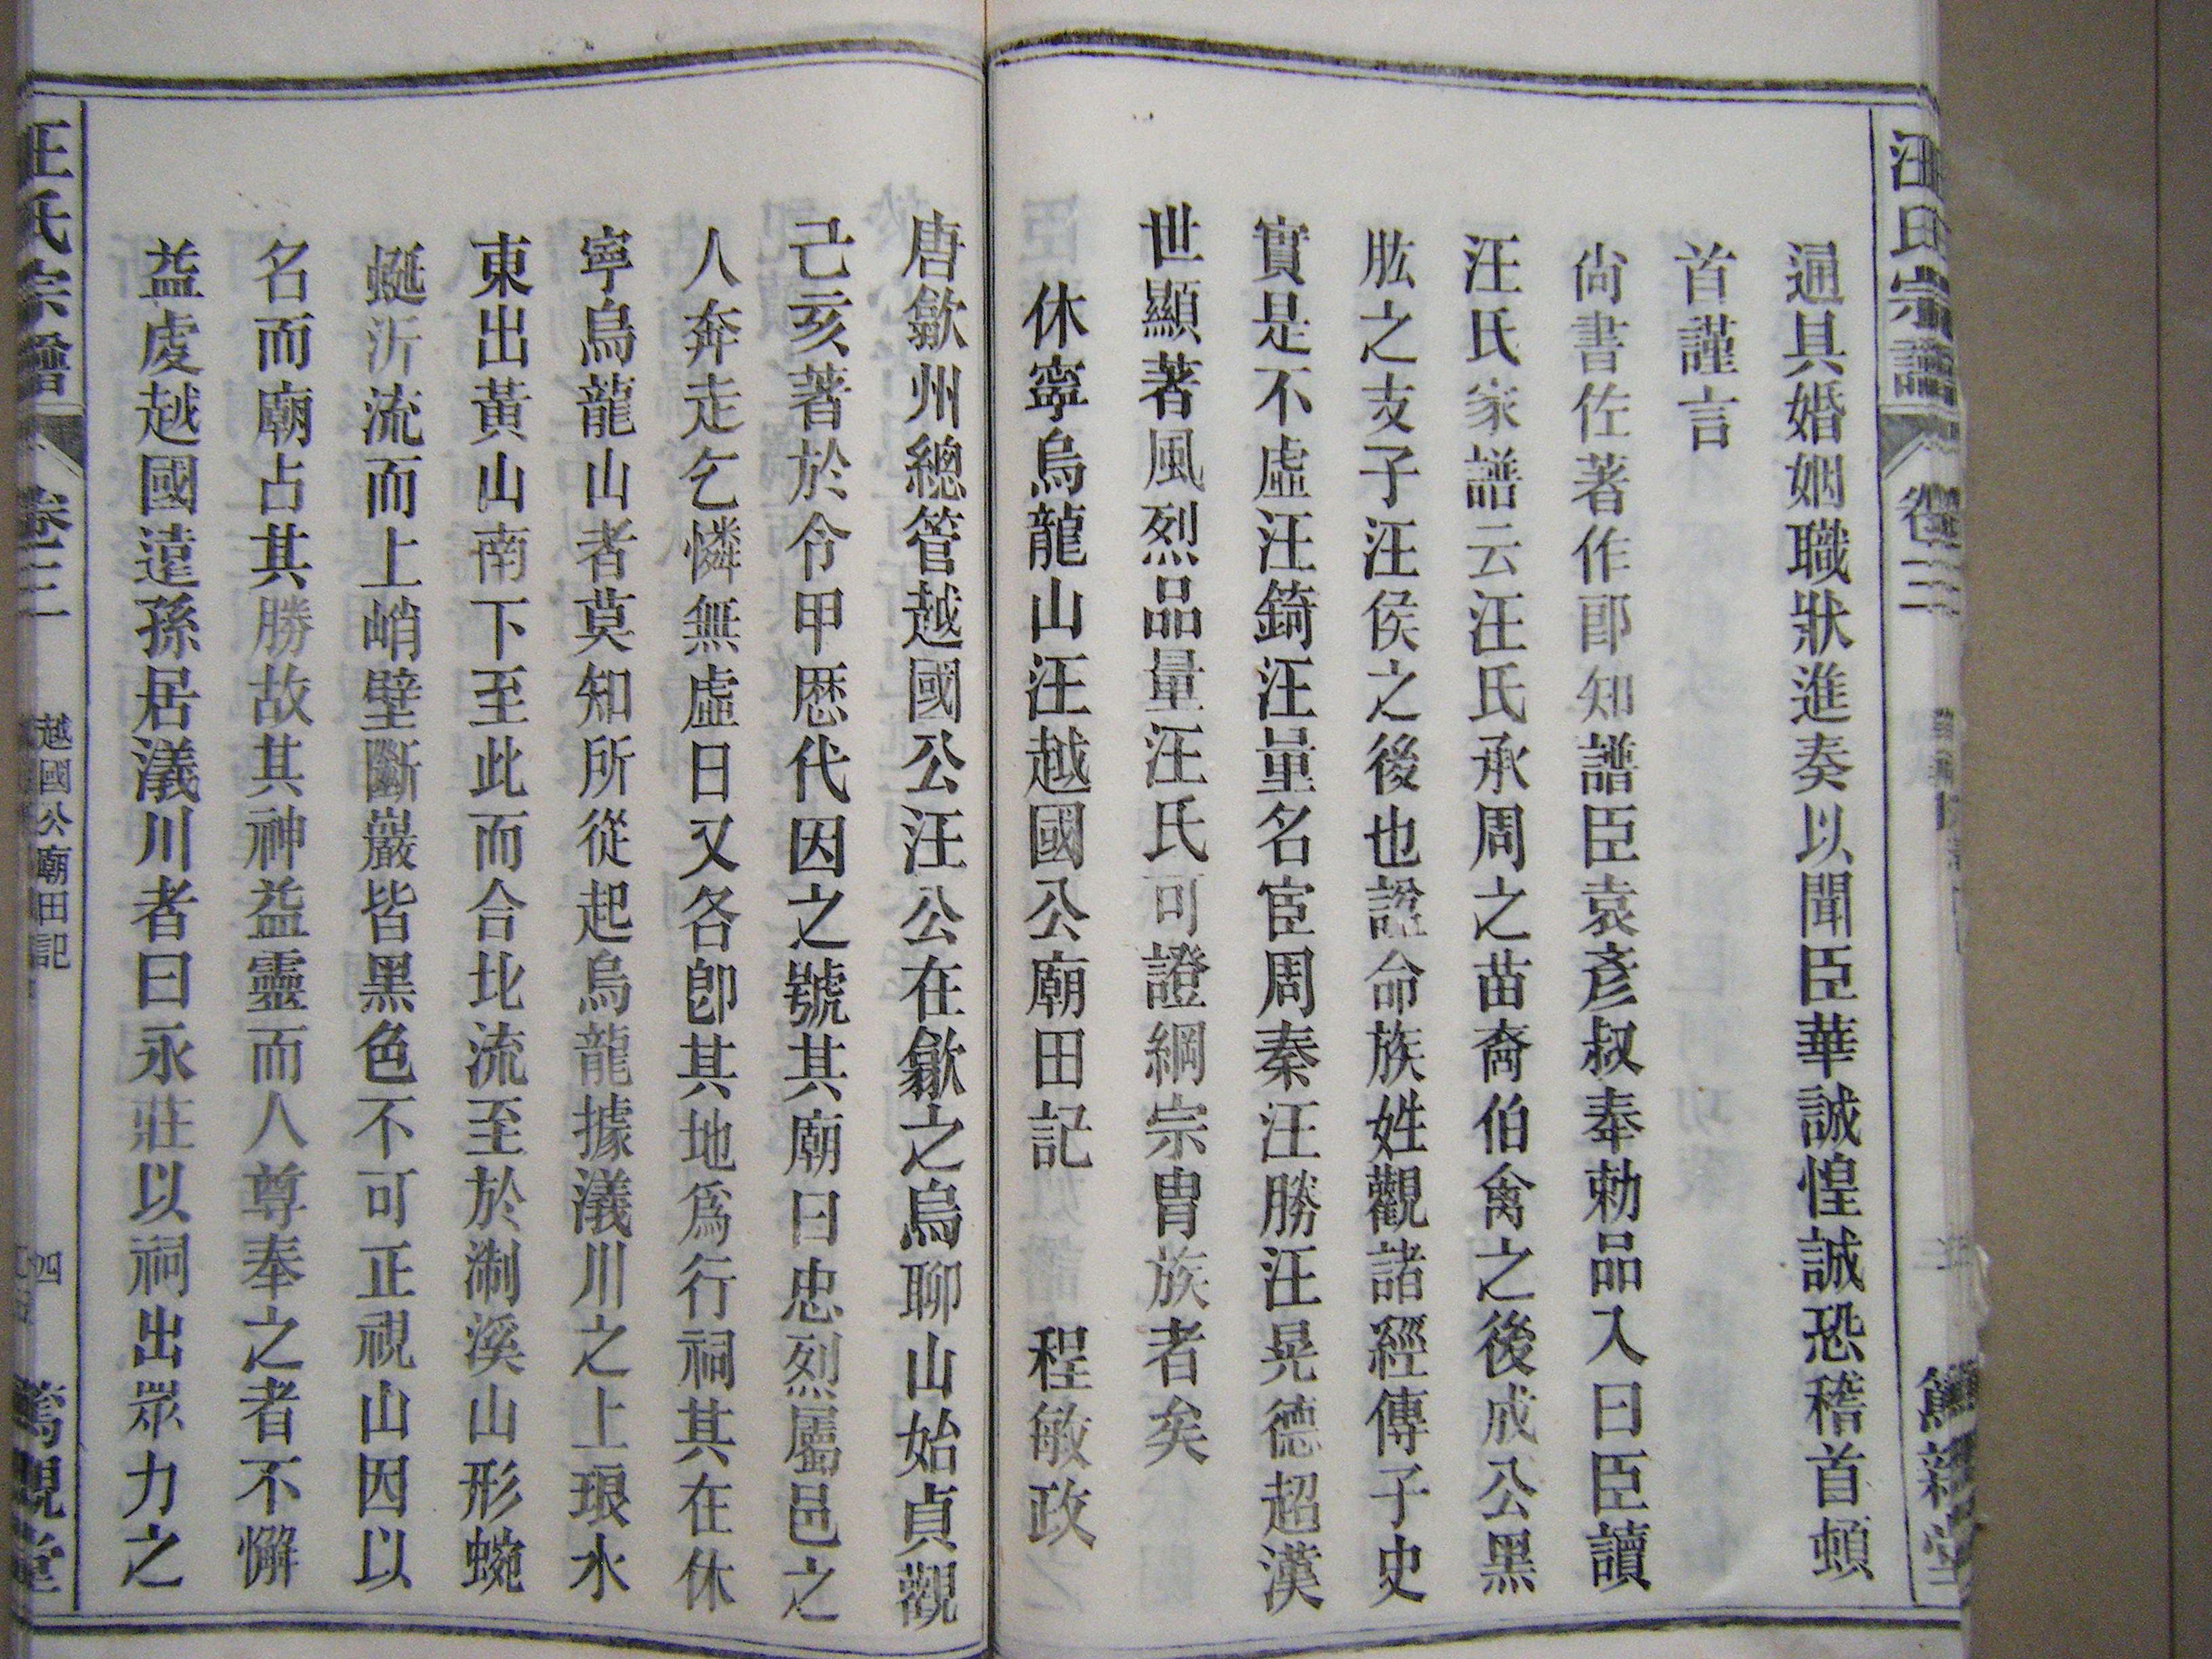 汪氏宗譜
卷三
通具婚姻職狀進奏以聞臣華誠惶誠恐稽首頓
首謹言
尙書佐著作郎知譜臣袁彥叔奉勅品入曰臣讀
汪氏家譜云汪氏承周之苗裔伯禽之後成公黑
肱之支子汪侯之後也諡命族姓觀諸經傳子史
實是不虛汪錡汪量名宦周秦汪勝汪晃德超漢
世顯著風烈品量汪氏可證綱宗胄族者矣
休寧烏龍山汪越國公廟田記 程敏政
唐歙州總管越國公汪公在歙之烏聊山始貞觀
己亥著於令甲歷代因之號其廟曰忠烈屬邑之
人奔走乞憐無虛日又各卽其地爲行祠其在休
寧烏龍山者莫知所從起烏龍據㵝川之上琅水
東出黃山南下至此而合北流至於淛溪山形蜿
蜒沂流而上峭壁斷巖皆黑色不可正視山因以
名而廟占其勝故其神益靈而人尊奉之者不懈
益虔越國遠孫居㵝川者曰永莊以祠出眾力之
汪氏宗譜
卷三
越國公廟田記
四